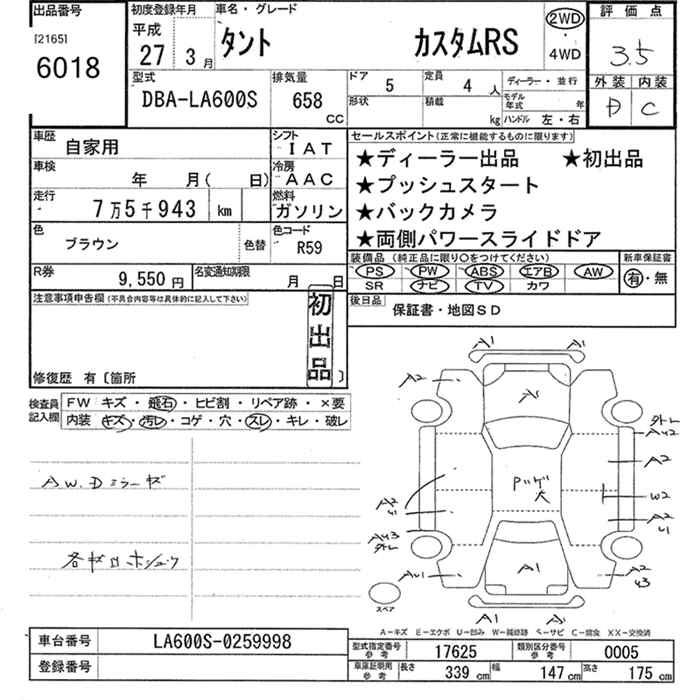 出品番号
[2165]
6018
初度登録年月
平成
27 3月
車名・グレード
タント カスタムRS
2WD
・
4WD
評価点
3.5
外装 内装
D C
型式
DBA-LA600S
排気量
658
CC
ドア
5
定員
4 人
ディーラー・並行
形状
積載
kg
モデル年式
年
ハンドル 左・右
車歴
自家用
シフト
IAT
車検
年 月( 日)
冷房
AAC
走行
7万5千943 km
燃料
ガソリン
色
ブラウン
色替
色コード
R59
R券
9,550円
名変通知期限
月 日
セールスポイント(正常に機能するものに限ります)
★ディーラー出品 ★初出品
★プッシュスタート
★バックカメラ
★両側パワースライドドア
装備品(純正品に限り○をつけてください)
新車保証書
PS PW ABS エアB AW
SR ナビ TV カワ
有・無
後日品
保証書・地図SD
注意事項申告欄(不具合内容等は具体的に記入して下さい)
初出品
修復歴 有〔箇所 〕
検査員記入欄
FW キズ・飛石・ヒビ割・リペア跡・×要
内装 キズ・汚レ・コゲ・穴・スレ・キレ・破レ
AW.Dミラーキズ
A1 A1
A2
A1
外レ
AU42
A2
W2
A2
U1
A2
U1
AU43
外レ
AU1
A1
A2
43
A1 A1
スペア
A-キズ E-エクボ U-凹み W-補修跡 S-サビ C-腐食 XX-交換済
車台番号
LA600S-0259998
登録番号
型式指定番号
参考
17625
類別区分番号
参考
0005
車庫証明用
参考
長さ 339 cm
幅 147 cm
高さ 175 cm